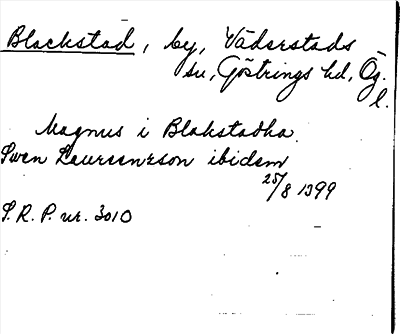 Blackstad, by, Väderstads
sn, Göstrings hd, Ög.
l.
Magnus i Blakstadha
Swen Laurensson ibidem
25/8 1399
S.R.P. nr. 3010